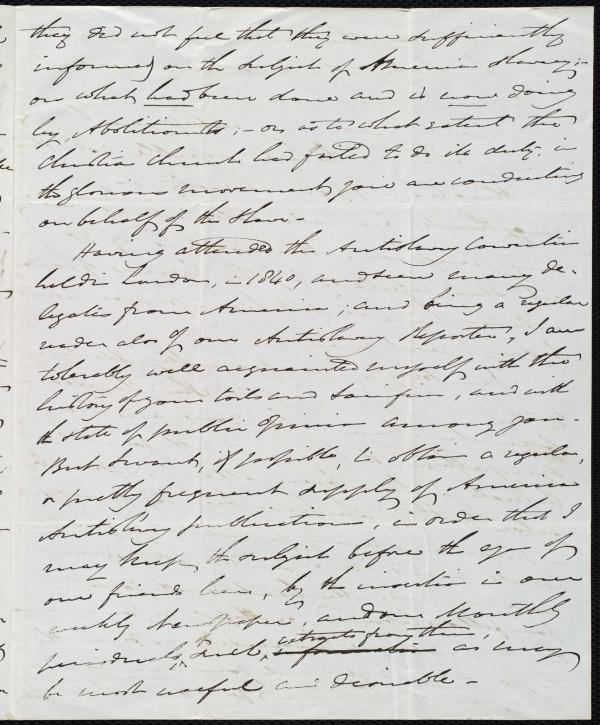 they did not feel that they were sufficiently
informed on the subject of American Slavery;-
on what had been done and is now doing
by Abolitionists;- or as to what extent the
Christian Church had failed to do its duty, in
the glorious movement you are conducting
on behalf of the Slave-
Having attended the Antislavery Convention
held in London, in 1840, and seen many de-
legates from America; and being a regular
reader also of our Antislavery Reporter, I am
tolerably well acquainted myself with the
history of your toils and sacrifices, and with
the state of public opinion among you-
But I want, if possible, to obtain a regular,
or pretty frequent supply of American
Antislavery publications, in order that I
may keep the subject before the eyes of
our friends here, by the insertion in our
weekly Newspaper, and our Monthly
periodicals, such extracts from them, as may
be most useful and desirable-